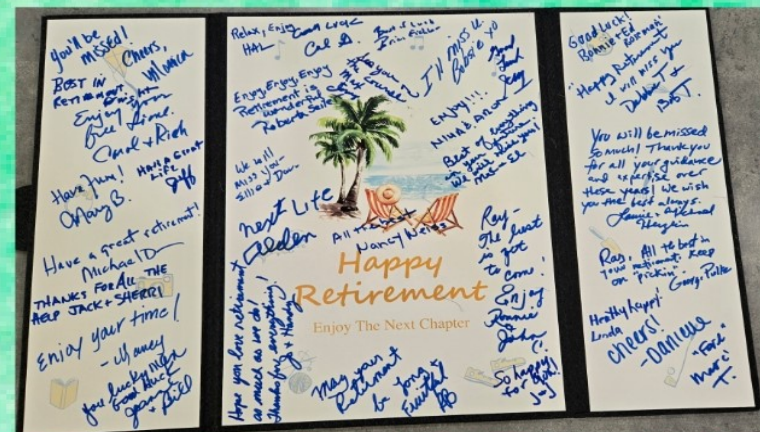 You'll be
missed!
Cheers,
Monica
BEST IN
RETIREMENT.
Enjoy your
free time.
Carol & Rich
HAVE A GREAT
LIFE
Jeff
Have Fun!
Mary B.
Have a great retirement!
Michael D
THANKS FOR ALL THE
HELP JACK + SHERRI
Enjoy your time!
- Nancy
you lucky man
Good luck
Joanne
+ Bill
Relax, Enjoy
HAL
GOOD LUCK
Cal G.
Best of luck
I'll miss U.
Bobsie xo
Good
Luck
Enjoy, Enjoy, Enjoy
Retirement is
wonderful
Roberta
ENJOY!!!
NINA & ARON
Best of everything
in your future.
We will miss you!
We will
Miss you-
next Life
Alden
All the best
Nancy
Ray-
The best
is yet
to come!
Enjoy
Ronnie
& John
Happy
Retirement
Enjoy The Next Chapter
Hope you love retirement
as much as we do!
Thanks for everything!
May your
Retirement
be long &
Fruitful
So happy
for you!
Joy
Good Luck!
Bonnie + Ed
"Happy Retirement
I will miss you
Debbie T +
Bob T.
You will be missed
so much! Thank you
for all your guidance
and expertise over
these years! We wish
you the best always.
Ray, All the best in
your retirement. Keep
on "pickin"
George
Healthy happy!
Linda
cheers!
- Danielle
"Fore"
Marc
T.